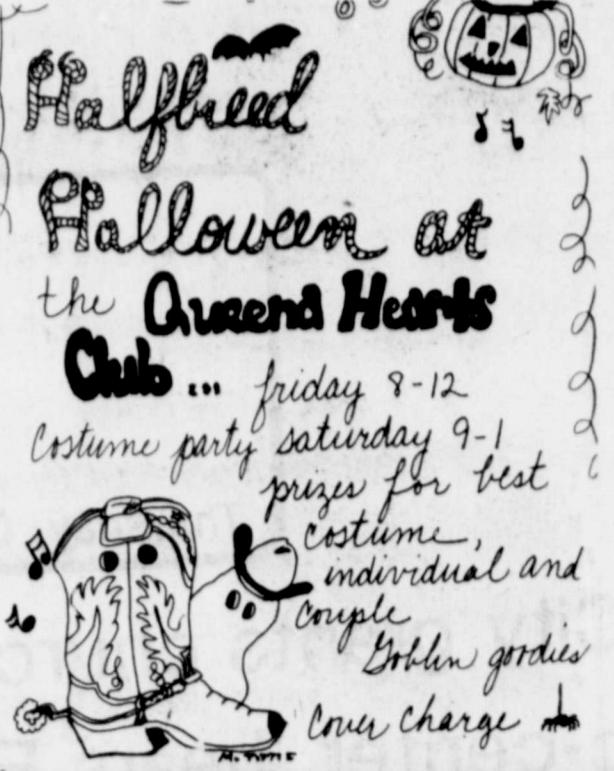 Halfbreed
Halloween at
the Queens Hearts
Club... friday 8-12
Costume party saturday 9-1
prizes for best
costume,
individual and
couple
Goblin goodies
Cover Charge